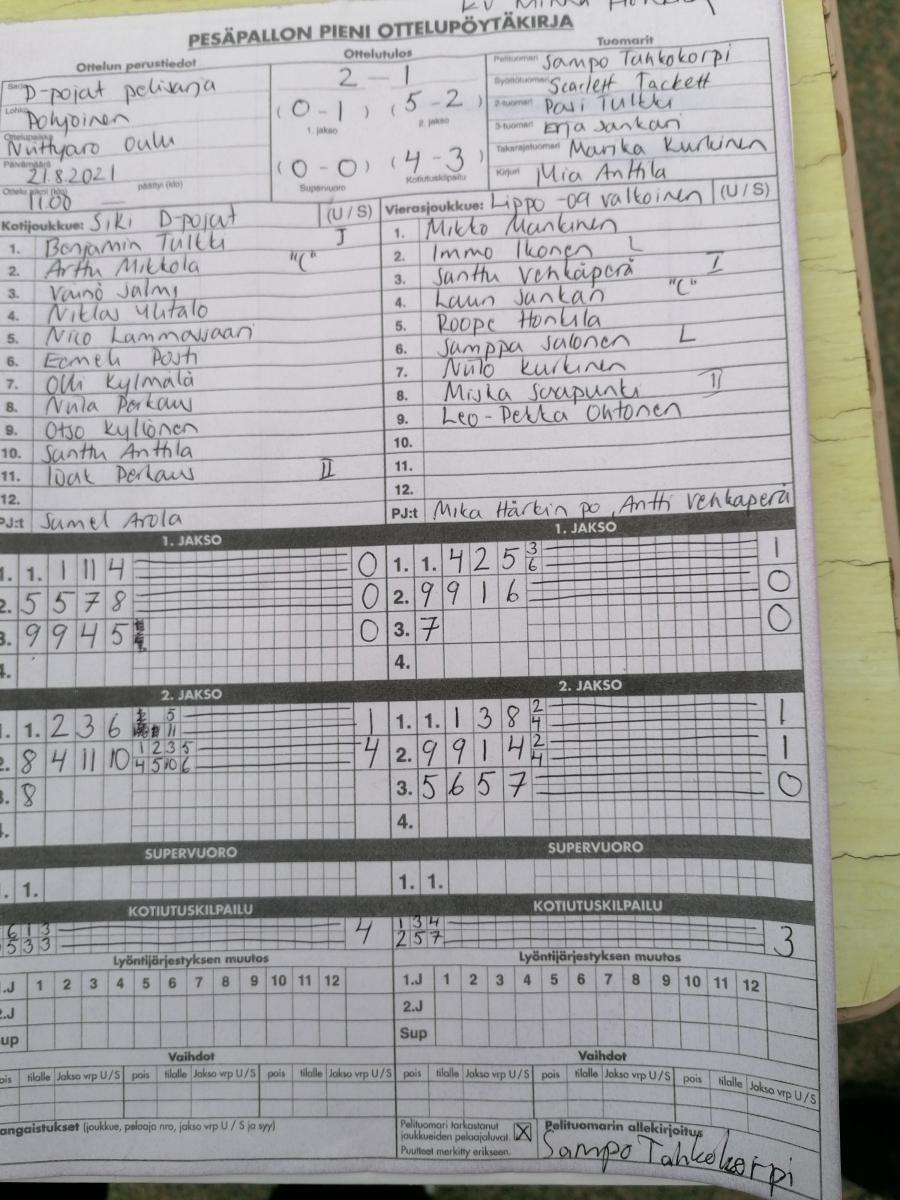 PESÄPALLON PIENI OTTELUPÖYTÄKIRJA
Ottelun perustiedot
Sarja D-pojat pelisarja
Lohko Pohjoinen
Ottelupaikka Nuttyaro Oulu
Päivämäärä 21.8.2021
Ottelu alkoi (klo) 11.00 päättyi (klo) —
Ottelutulos
2 — 1
(0-1) (5-2)
1. jakso 2. jakso
(0-0) (4-3)
Supervuoro Kotiutuskilpailu
Tuomarit
Pelituomari Sampo Tahkokorpi
Syöttötuomari Scarlett Tackett
2-tuomari Pasi Tulkki
3-tuomari Erja Sankari
Takarajatuomari Marika Kurkinen
Kirjuri Mia Anttila
Kotijoukkue: Siki D-pojat (U / S)
1. Benjamin Tulkki I
2. Arttu Mikkola "C"
3. Väinö Salmi
4. Niklas Ylitalo
5. Nico Lammassaari
6. Eemeli Posti
7. Olli Kylmälä
8. Niila Perkaus
9. Otso Kyllönen
10. Santtu Anttila
11. Perkaus II
12.
PJ:t Samel Arola
Vierasjoukkue: Lippo -09 valkoinen (U / S)
1. Mikko Mankinen
2. Immo Ikonen L
3. Santtu Vehkaperä I
4. Lauri Sankari "C"
5. Roope Honkila
6. Samppa Salonen L
7. Niilo Kurkinen
8. Miska Saapunki II
9. Leo-Pekka Ohtonen
10.
11.
12.
PJ:t Mika Härkin po, Antti Vehkaperä
1. JAKSO
1. 1. 1 11 4 0
2. 5 5 7 8 0
3. 9 9 4 5 0
4.
1. JAKSO
1. 1. 4 2 5 3 1
6
2. 9 9 1 6 0
3. 7 0
4.
2. JAKSO
1. 1. 2 3 6 5 1
11
2. 8 4 11 10 1 2 3 5 4
4 5 10 6
3. 8
4.
2. JAKSO
1. 1. 1 3 8 2 1
4
2. 9 9 1 4 2 1
4
3. 5 6 5 7 0
4.
SUPERVUORO
1. 1.
SUPERVUORO
1. 1.
KOTIUTUSKILPAILU
6 1 3 4
5 3 3
KOTIUTUSKILPAILU
1 3 4 3
2 5 7
Lyöntijärjestyksen muutos
1.J 1 2 3 4 5 6 7 8 9 10 11 12
2.J
Sup
Lyöntijärjestyksen muutos
1.J 1 2 3 4 5 6 7 8 9 10 11 12
2.J
Sup
Vaihdot
pois tilalle Jakso vrp U / S pois tilalle Jakso vrp U / S pois tilalle Jakso vrp U / S
Vaihdot
pois tilalle Jakso vrp U / S pois tilalle Jakso vrp U / S pois tilalle Jakso vrp U / S
angaistukset (joukkue, pelaaja nro, jakso vrp U / S ja syy)
Pelituomari tarkastanut
joukkueiden pelaajaluvat. X
Puutteet merkitty erikseen.
Pelituomarin allekirjoitus
Sampo Tahkokorpi